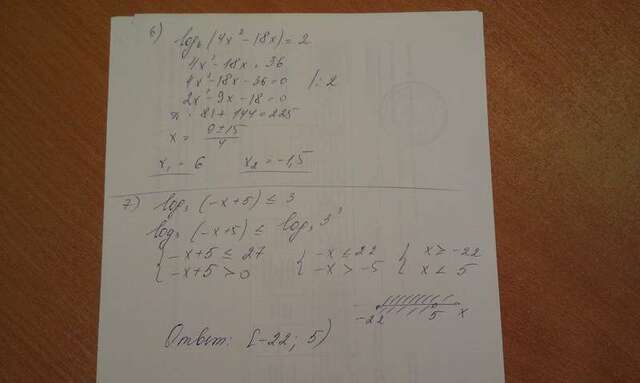 6) log₆ (4x² - 18x) = 2
4x² - 18x = 36
4x² - 18x - 36 = 0 | : 2
2x² - 9x - 18 = 0
D = 81 + 144 = 225
x = (9 ± 15)/4
x₁ = 6 x₂ = -1,5
7) log₃ (-x+5) ≤ 3
log₃ (-x+5) ≤ log₃ 3³
{ -x+5 ≤ 27 { -x ≤ 22 { x ≥ -22
{ -x+5 > 0 { -x > -5 { x < 5
-22 5 x
Ответ: [-22; 5)